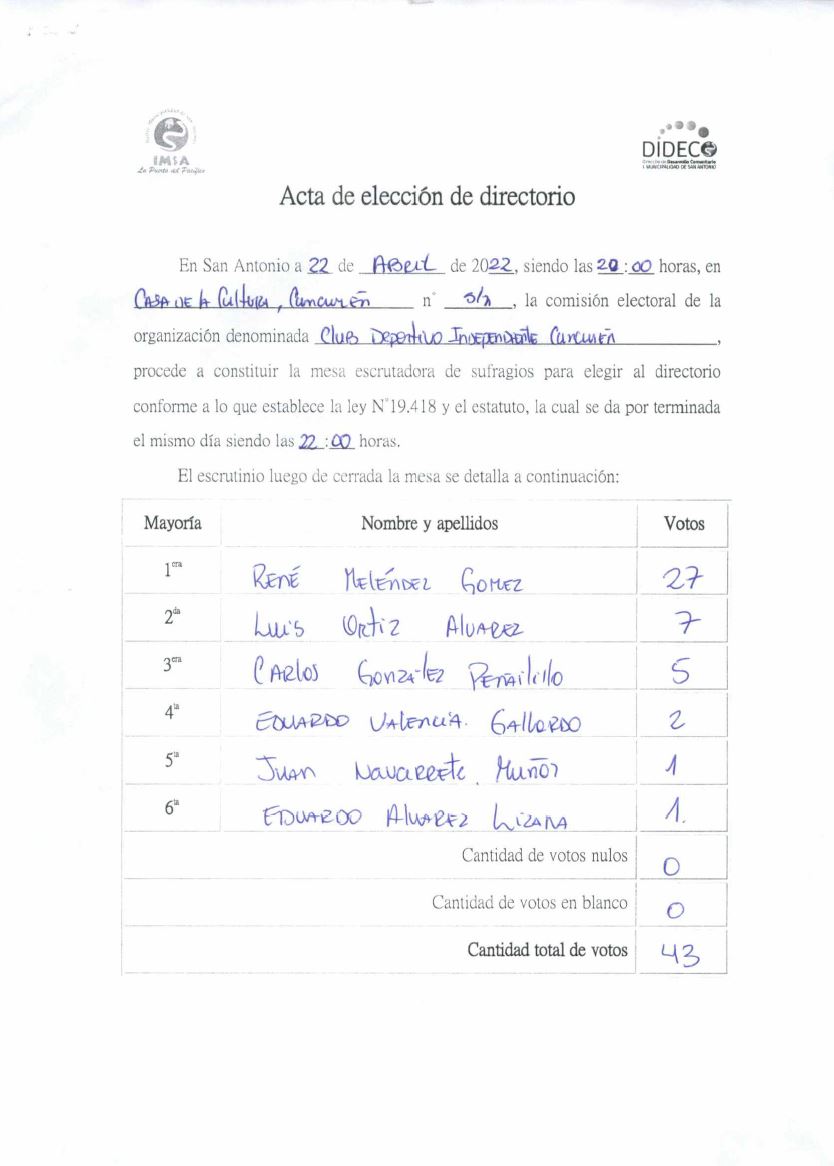 IMSA
La Puerta del Pacífico
DIDECO
Dirección de Desarrollo Comunitario
I. MUNICIPALIDAD DE SAN ANTONIO
Acta de elección de directorio
En San Antonio a 22 de ABRIL de 2022, siendo las 20:00 horas, en
CASA DE LA CULTURA, CUNCUMÉN n° S/N, la comisión electoral de la
organización denominada CLUB DEPORTIVO INDEPENDIENTE CUNCUMÉN,
procede a constituir la mesa escrutadora de sufragios para elegir al directorio
conforme a lo que establece la ley N°19.418 y el estatuto, la cual se da por terminada
el mismo día siendo las 22:00 horas.
El escrutinio luego de cerrada la mesa se detalla a continuación:
Mayoría Nombre y apellidos Votos
1era RENÉ MELÉNDEZ GOMEZ 27
2da LUIS ORTIZ ALVAREZ 7
3era CARLOS GONZALEZ PEÑAILILLO 5
4ta EDUARDO VALENCIA. GALLARDO 2
5ta JUAN NAVARRETE. MUÑOZ 1
6ta EDUARDO ALVAREZ LIZANA 1.
Cantidad de votos nulos 0
Cantidad de votos en blanco 0
Cantidad total de votos 43